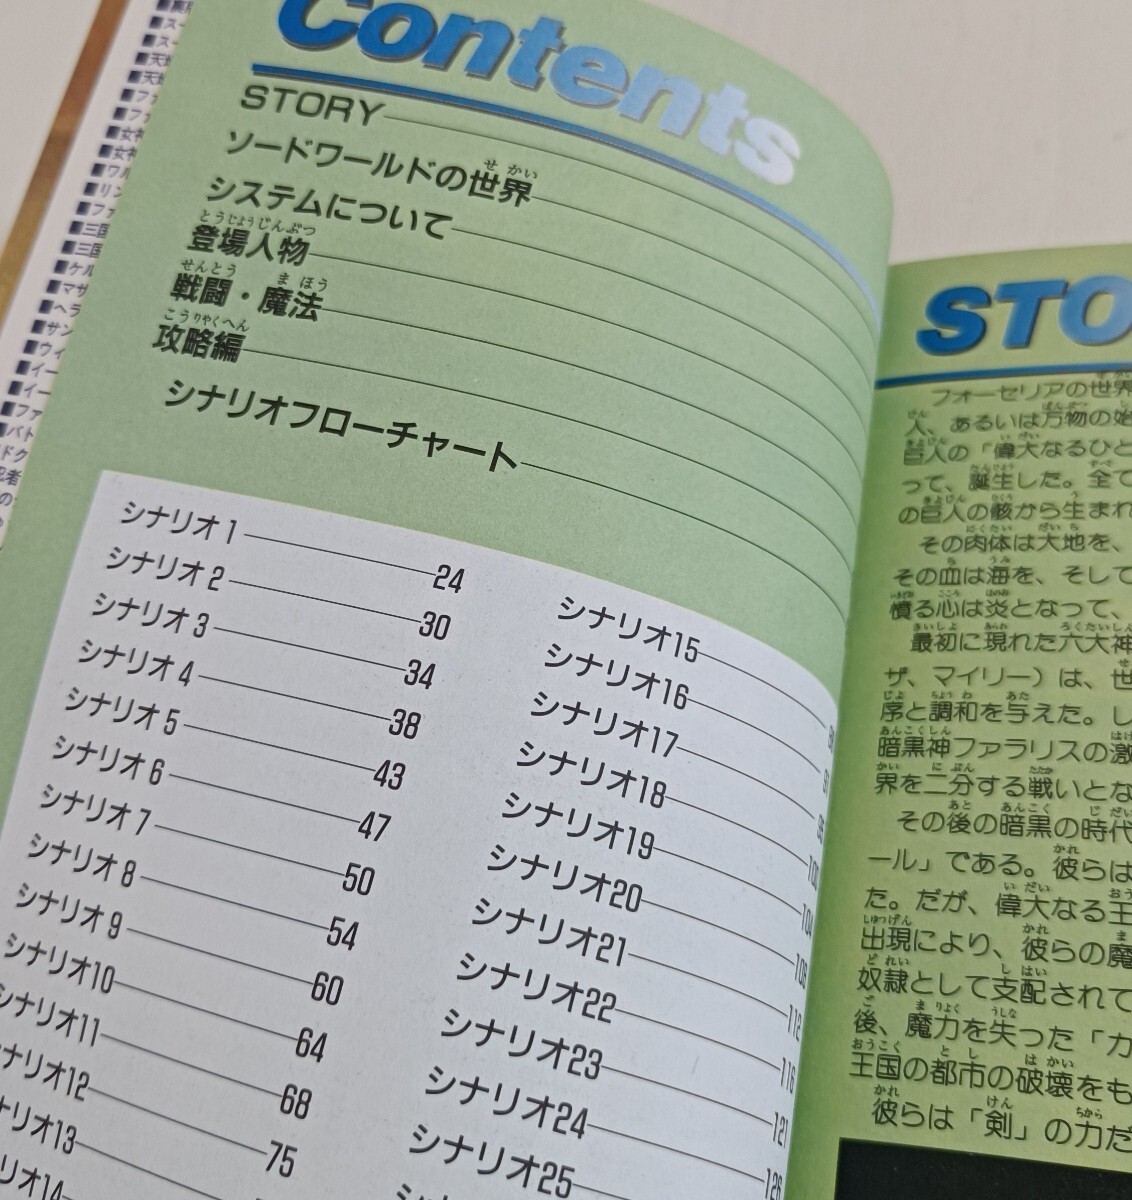 Contents
STORY
ソードワールドの世界
システムについて
登場人物
戦闘・魔法
攻略編
シナリオフローチャート
シナリオ1 24
シナリオ2 30
シナリオ3 34
シナリオ4 38
シナリオ5 43
シナリオ6 47
シナリオ7 50
シナリオ8 54
シナリオ9 60
シナリオ10 64
シナリオ11 68
シナリオ12 75
シナリオ13
シナリオ15
シナリオ16
シナリオ17
シナリオ18
シナリオ19 104
シナリオ20 108
シナリオ21 112
シナリオ22 116
シナリオ23 121
シナリオ24 126
シナリオ25
STO
フォーセリアの世界
人、あるいは万物の始
巨人の「偉大なるひと
って、誕生した。全て
の巨人の骸から生まれ
その肉体は大地を、
その血は海を、そして
憤る心は炎となって、
最初に現れた六大神
ザ、マイリー）は、世
序と調和を与えた。し
暗黒神ファラリスの激
界を二分する戦いとな
その後の暗黒の時代
ール」である。彼らは
た。だが、偉大なる王
出現により、彼らの魔
奴隷として支配されて
後、魔力を失った「カ
王国の都市の破壊をも
彼らは「剣」の力だ